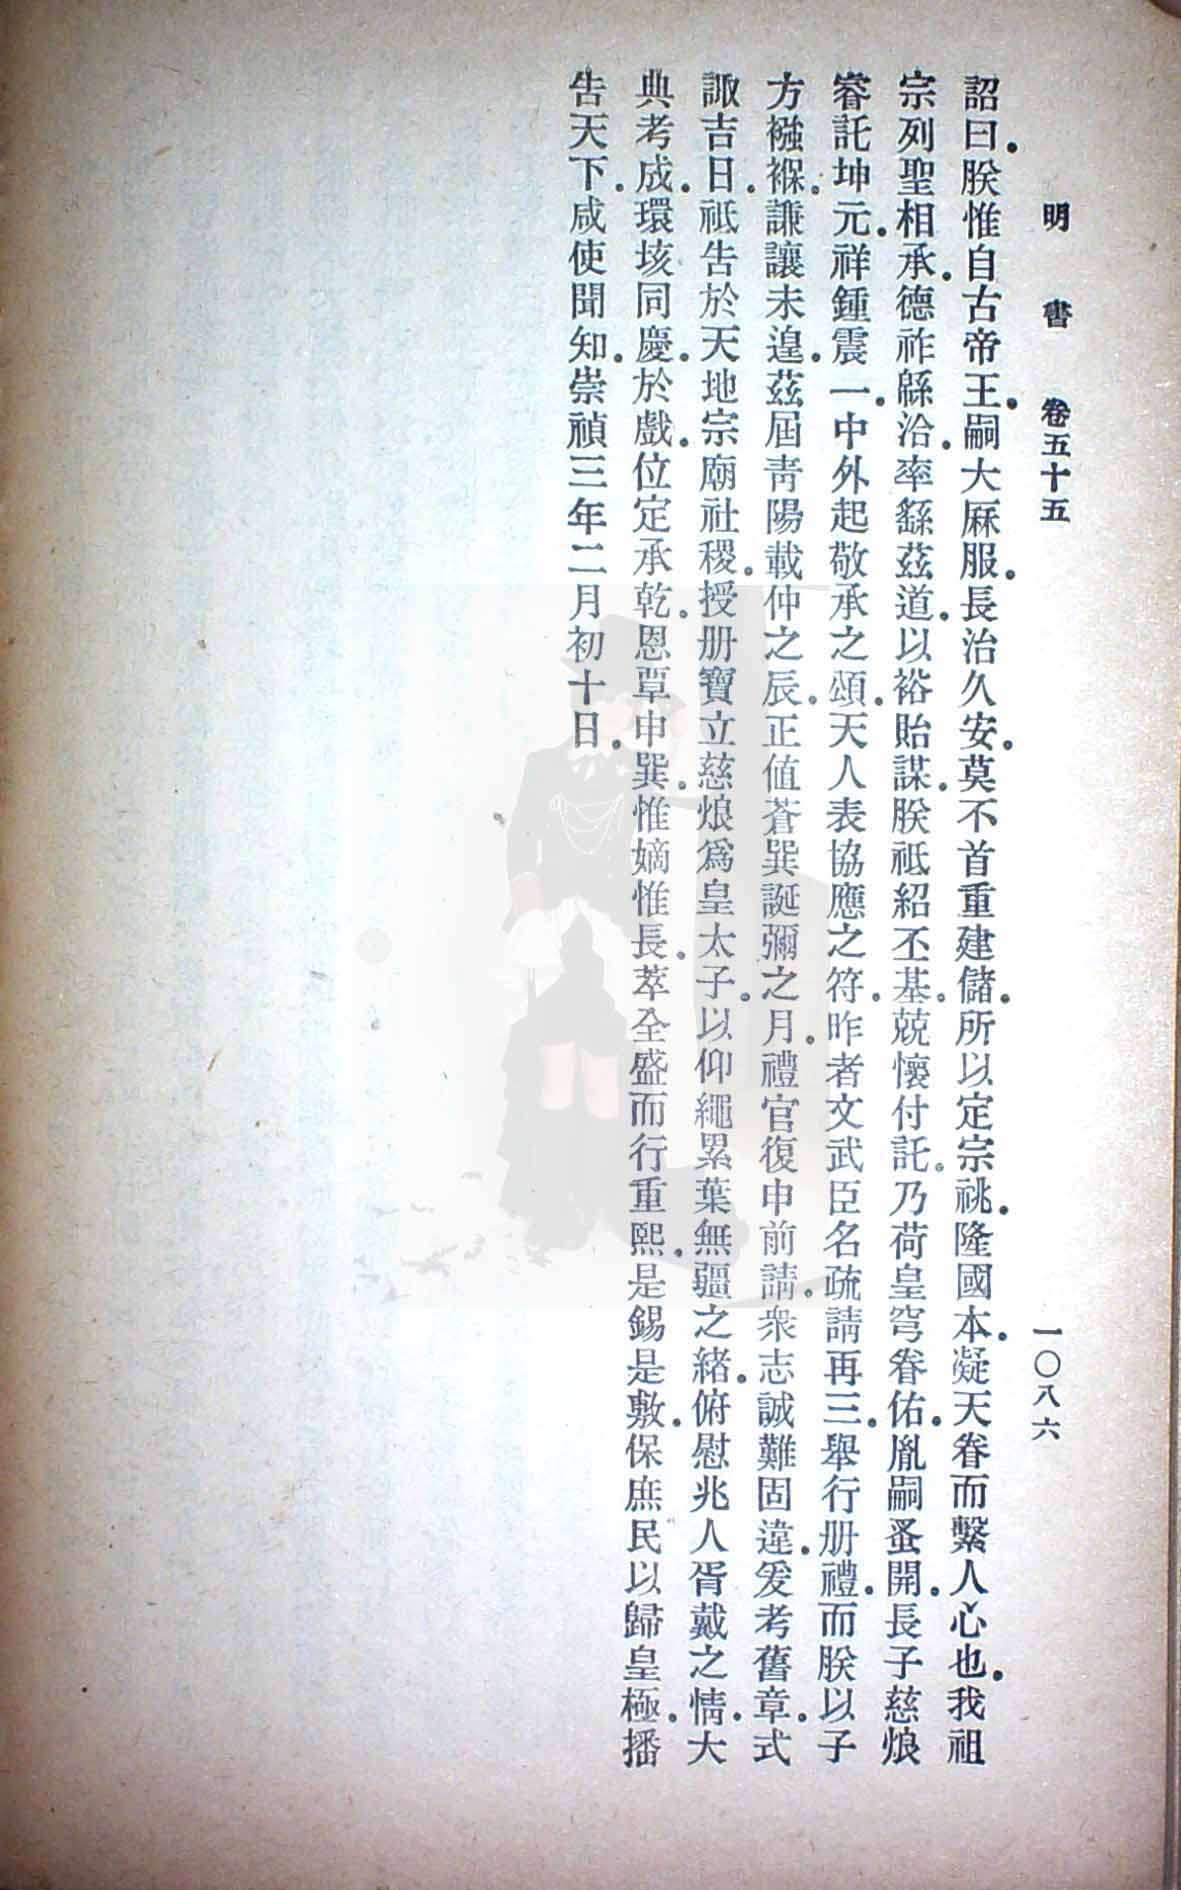 明書 卷五十五 一〇八六
詔曰．朕惟自古帝王．嗣大厤服．長治久安．莫不首重建儲．所以定宗祧．隆國本．凝天眷而繫人心也．我祖
宗列聖相承．德祚緜洽．率繇茲道．以裕貽謀．朕祗紹丕基．兢懷付託．乃荷皇穹眷佑．胤嗣蚤開．長子慈烺
睿託坤元．祥鍾震一．中外起敬承之頌．天人表協應之符．昨者文武臣名疏請再三．舉行册禮．而朕以子
方襁褓．謙讓未遑．茲屆靑陽載仲之辰．正值蒼巽誕彌之月．禮官復申前請．衆志誠難固違．爰考舊章．式
諏吉日．祗告於天地宗廟社稷．授册寶立慈烺爲皇太子．以仰繩累葉無疆之緒．俯慰兆人胥戴之情．大
典考成．環垓同慶．於戲．位定承乾．恩覃申巽．惟嫡惟長．萃全盛而行重熙．是錫是敷．保庶民以歸皇極．播
告天下．咸使聞知．崇禎三年二月初十日．